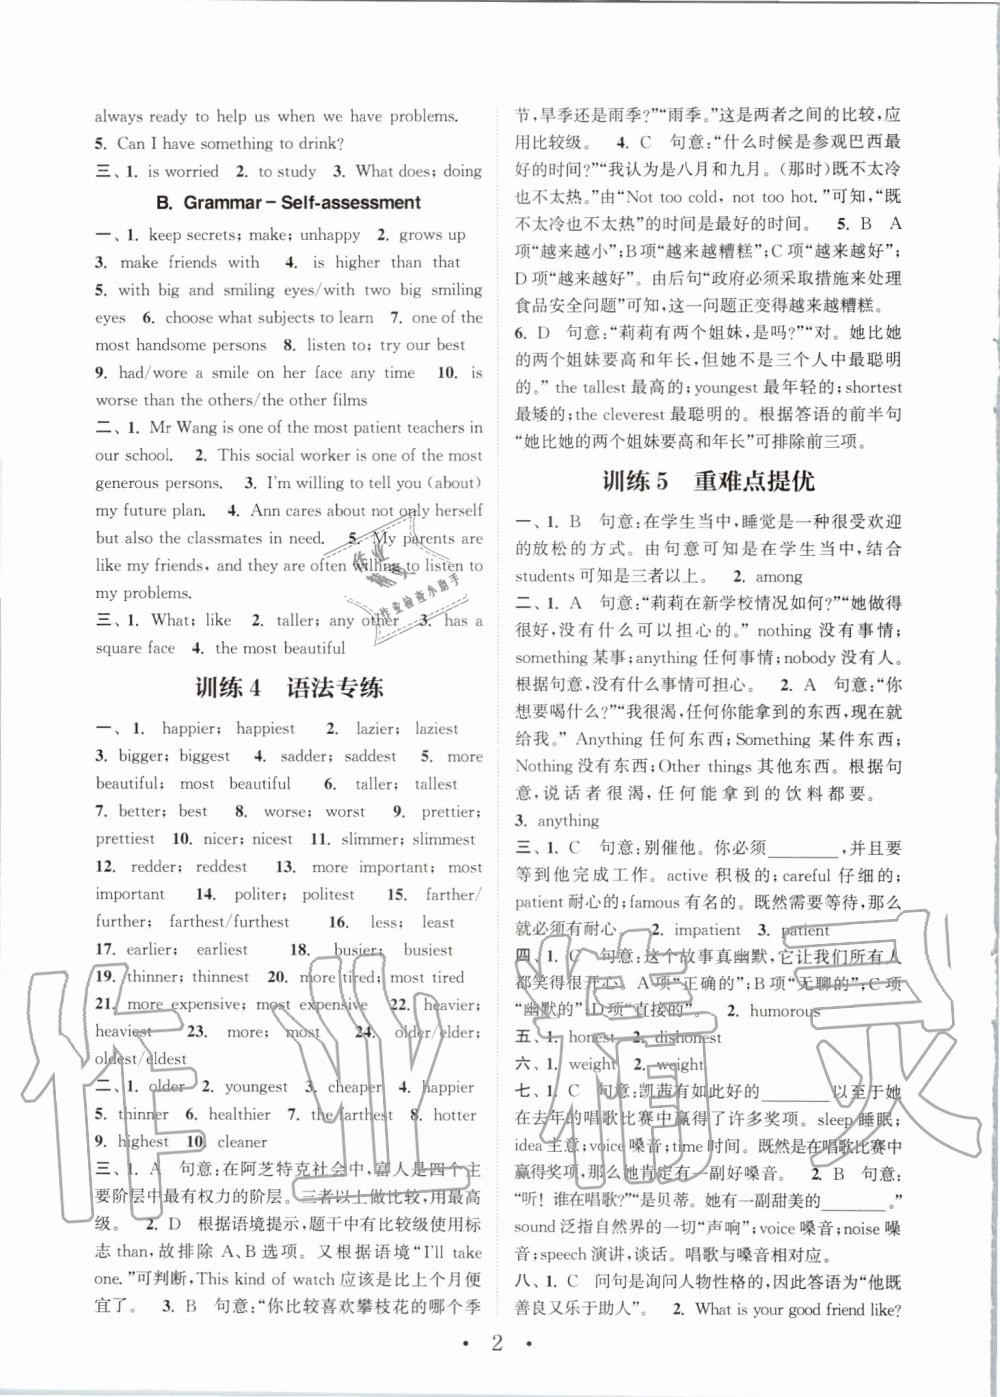 always ready to help us when we have problems.
5. Can I have something to drink?
三、1. is worried 2. to study 3. What does; doing
B. Grammar – Self-assessment
一、1. keep secrets; make; unhappy 2. grows up
3. make friends with 4. is higher than that
5. with big and smiling eyes/with two big smiling
eyes 6. choose what subjects to learn 7. one of the
most handsome persons 8. listen to; try our best
9. had/wore a smile on her face any time 10. is
worse than the others/the other films
二、1. Mr Wang is one of the most patient teachers in
our school. 2. This social worker is one of the most
generous persons. 3. I'm willing to tell you (about)
my future plan. 4. Ann cares about not only herself
but also the classmates in need. 5. My parents are
like my friends, and they are often willing to listen to
my problems.
三、1. What; like 2. taller; any other 3. has a
square face 4. the most beautiful
训练 4 语法专练
一、1. happier; happiest 2. lazier; laziest
3. bigger; biggest 4. sadder; saddest 5. more
beautiful; most beautiful 6. taller; tallest
7. better; best 8. worse; worst 9. prettier;
prettiest 10. nicer; nicest 11. slimmer; slimmest
12. redder; reddest 13. more important; most
important 14. politer; politest 15. farther/
further; farthest/furthest 16. less; least
17. earlier; earliest 18. busier; busiest
19. thinner; thinnest 20. more tired; most tired
21. more expensive; most expensive 22. heavier;
heaviest 23. more; most 24. older/elder;
oldest/eldest
二、1. older 2. youngest 3. cheaper 4. happier
5. thinner 6. healthier 7. the farthest 8. hotter
9. highest 10. cleaner
三、1. A 句意:在阿芝特克社会中,富人是四个主
要阶层中最有权力的阶层。三者以上做比较,用最高
级。 2. D 根据语境提示,题干中有比较级使用标
志 than,故排除 A、B 选项。又根据语境“I'll take
one.”可判断,This kind of watch 应该是比上个月便
宜了。 3. B 句意:“你比较喜欢攀枝花的哪个季
节,旱季还是雨季?”“雨季。”这是两者之间的比较,应
用比较级。 4. C 句意:“什么时候是参观巴西最
好的时间?”“我认为是八月和九月。(那时)既不太冷
也不太热。”由“Not too cold, not too hot.”可知,“既
不太冷也不太热”的时间是最好的时间。 5. B A
项“越来越小”;B项“越来越糟糕”;C项“越来越好”;
D项“越来越好”。由后句“政府必须采取措施来处理
食品安全问题”可知,这一问题正变得越来越糟糕。
6. D 句意:“莉莉有两个姐妹,是吗?”“对。她比她
的两个姐妹要高和年长,但她不是三个人中最聪明
的。” the tallest 最高的; youngest 最年轻的; shortest
最矮的; the cleverest 最聪明的。根据答语的前半句
“她比她的两个姐妹要高和年长”可排除前三项。
训练 5 重难点提优
一、1. B 句意:在学生当中,睡觉是一种很受欢迎
的放松的方式。由句意可知是在学生当中,结合
students 可知是三者以上。 2. among
二、1. A 句意:“莉莉在新学校情况如何?”“她做得
很好,没有什么可以担心的。”nothing 没有事情;
something 某事; anything 任何事情; nobody 没有人。
根据句意,没有什么事情可担心。 2. A 句意:“你
想要喝什么?”“我很渴,任何你能拿到的东西,现在就
给我。”Anything 任何东西; Something 某件东西;
Nothing 没有东西; Other things 其他东西。根据句
意,说话者很渴,任何能拿到的饮料都要。
3. anything
三、1. C 句意:别催他。你必须________,并且要
等到他完成工作。active 积极的; careful 仔细的;
patient 耐心的; famous 有名的。既然需要等待,那么
就必须有耐心。 2. impatient 3. patient
四、1. C 句意:这个故事真幽默,它让我们所有人
都笑得很开心。A项“正确的”;B项“无聊的”;C项
“幽默的”;D项“直接的”。 2. humorous
五、1. honest 2. dishonest
六、1. weight 2. weight
七、1. C 句意:凯茜有如此好的________以至于她
在去年的唱歌比赛中赢得了许多奖项。sleep 睡眠;
idea 主意; voice 嗓音; time 时间。既然是在唱歌比赛中
赢得奖项,那么她肯定有一副好嗓音。 2. B 句意:
“听!谁在唱歌?”“是贝蒂。她有一副甜美的________。”
sound 泛指自然界的一切“声响”; voice 嗓音; noise 噪
音; speech 演讲,谈话。唱歌与嗓音相对应。
八、1. C 问句是询问人物性格的,因此答语为“他既
善良又乐于助人”。 2. What is your good friend like?
• 2 •
作业精灵
作业检查小助手